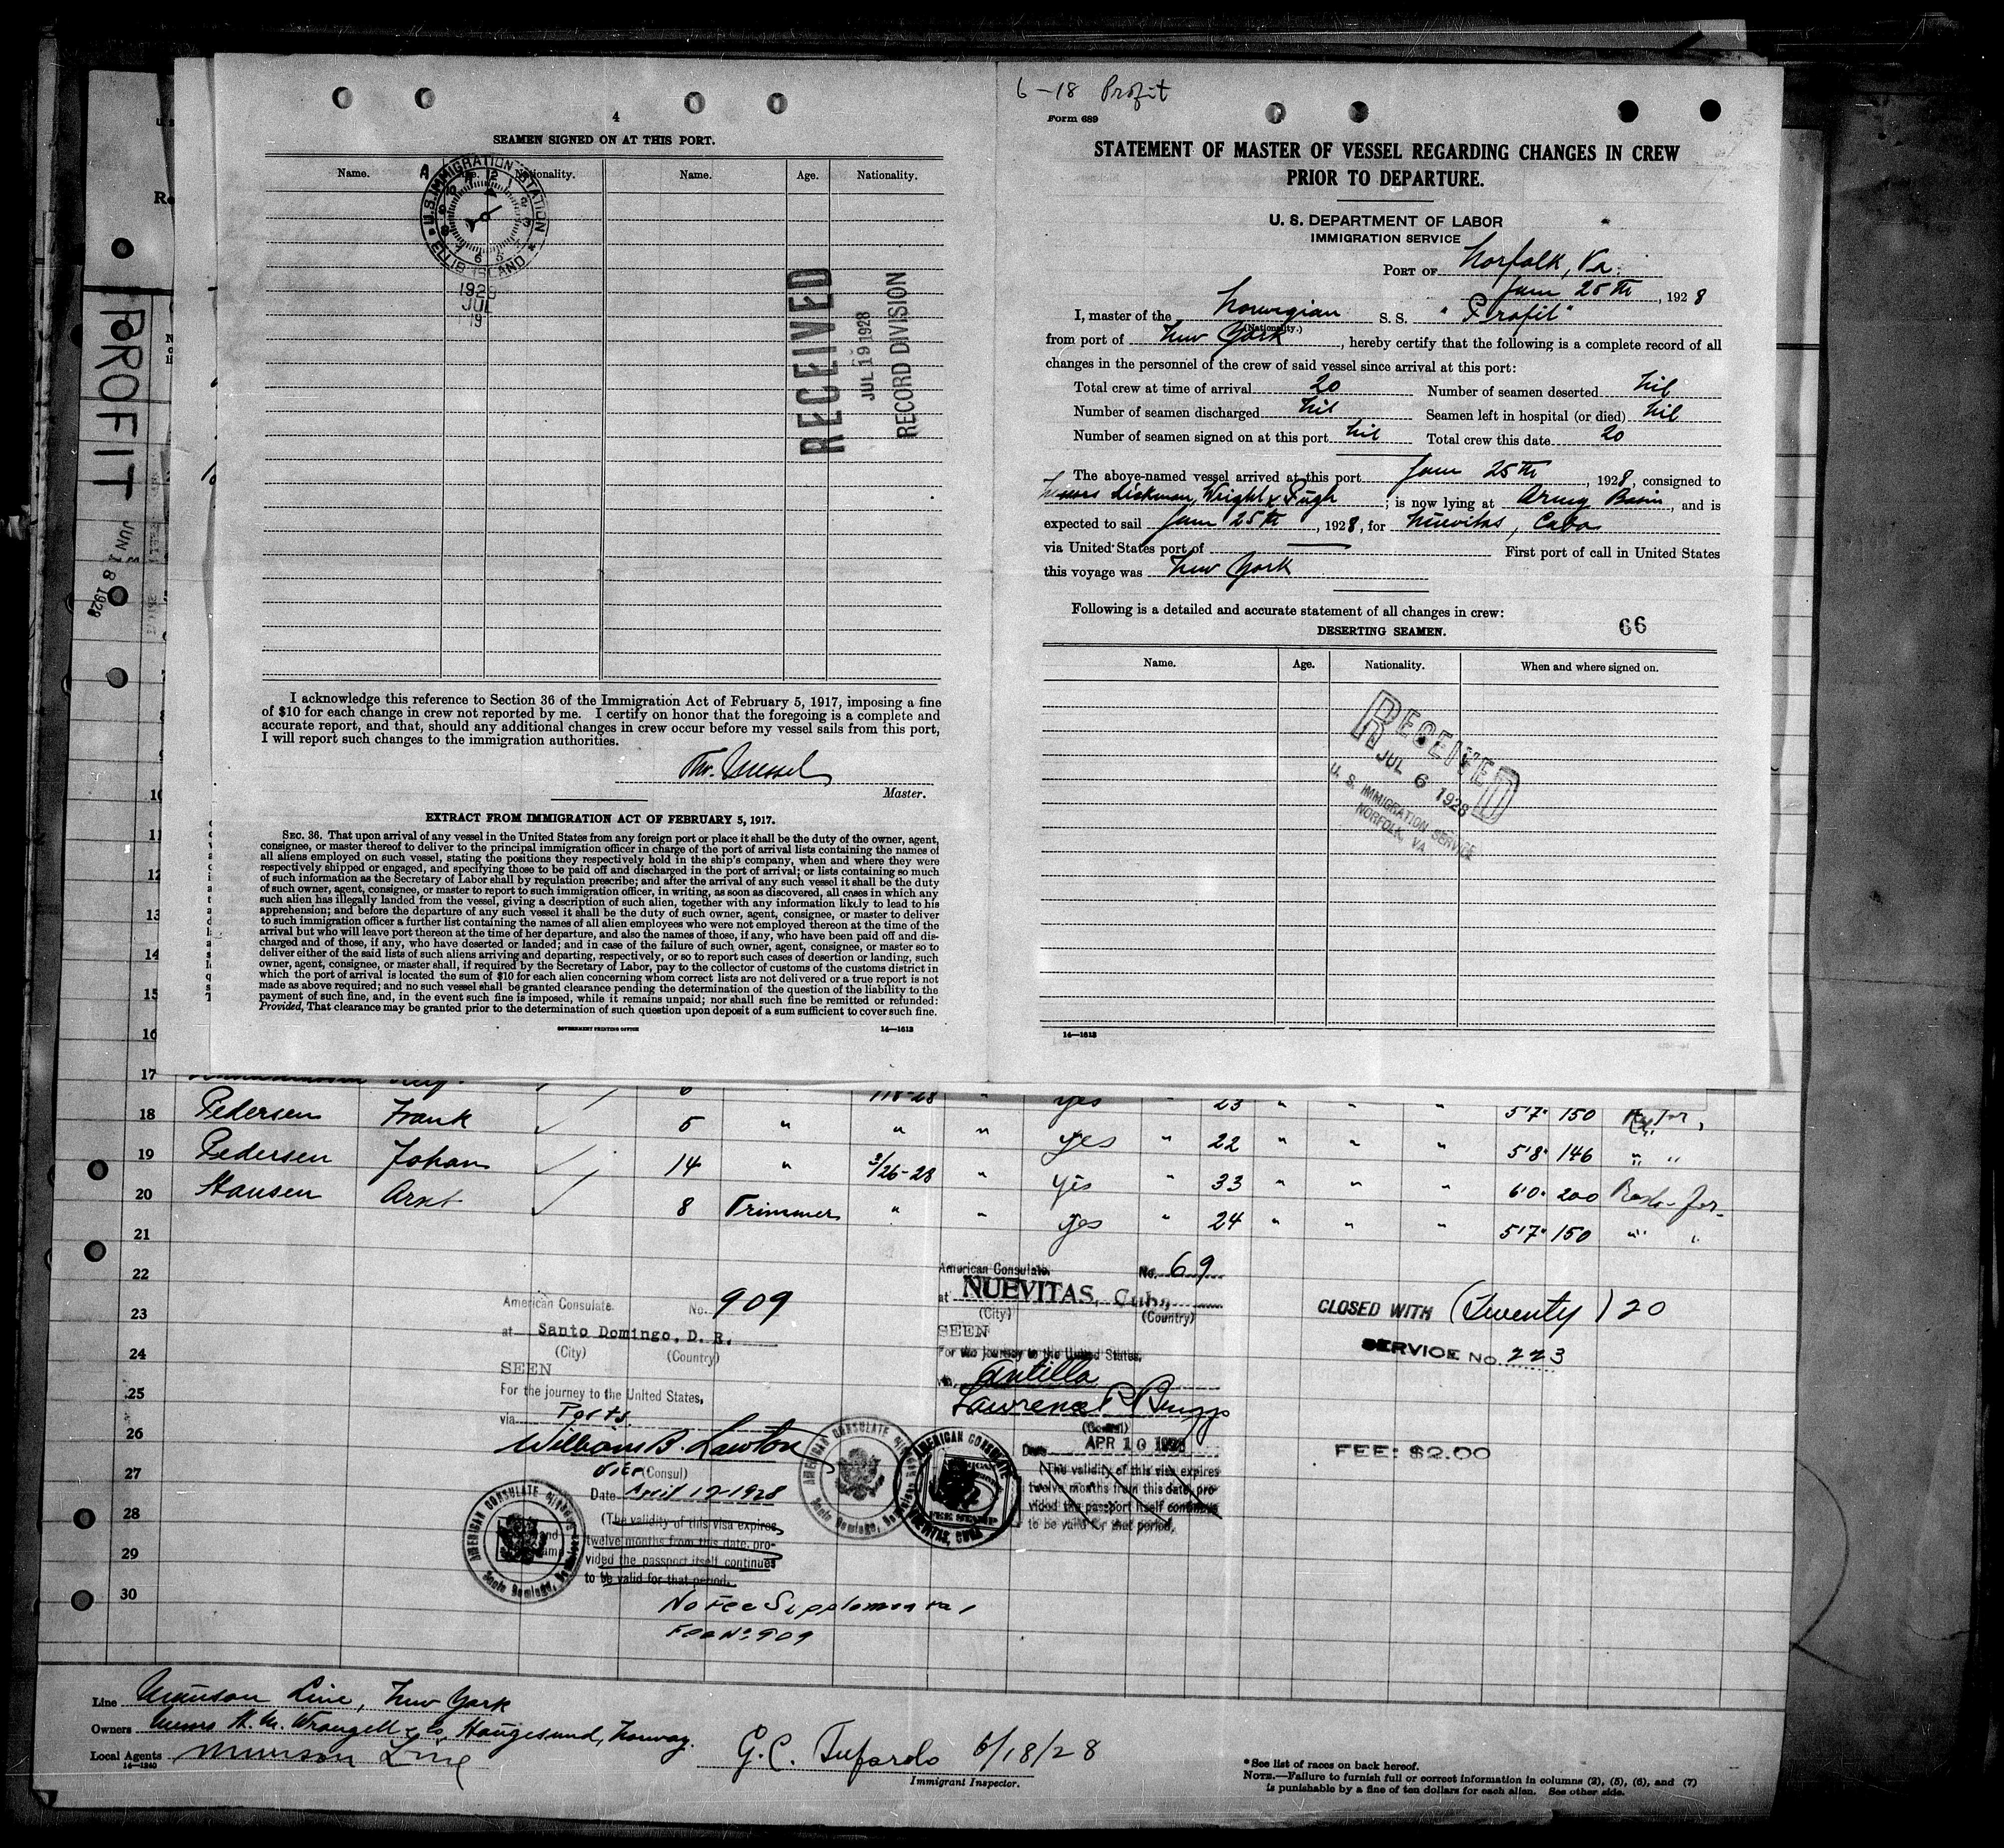 4
SEAMEN SIGNED ON AT THIS PORT.
Name. Nationality. Name. Age. Nationality.
U. S. IMMIGRATION STATION
ELLIS ISLAND
1928
JUL
19
RECEIVED
JUL 19 1928
RECORD DIVISION
I acknowledge this reference to Section 36 of the Immigration Act of February 5, 1917, imposing a fine
of $10 for each change in crew not reported by me. I certify on honor that the foregoing is a complete and
accurate report, and that, should any additional changes in crew occur before my vessel sails from this port,
I will report such changes to the immigration authorities.
Master.
EXTRACT FROM IMMIGRATION ACT OF FEBRUARY 5, 1917.
SEC. 36. That upon arrival of any vessel in the United States from any foreign port or place it shall be the duty of the owner, agent,
consignee, or master thereof to deliver to the principal immigration officer in charge of the port of arrival lists containing the names of
all aliens employed on such vessel, stating the positions they respectively hold in the ship's company, when and where they were
respectively shipped or engaged, and specifying those to be paid off and discharged in the port of arrival; or lists containing so much
of such information as the Secretary of Labor shall by regulation prescribe; and after the arrival of any such vessel it shall be the duty
of such owner, agent, consignee, or master to report to such immigration officer, in writing, as soon as discovered, all cases in which any
such alien has illegally landed from the vessel, giving a description of such alien, together with any information likely to lead to his
apprehension; and before the departure of any such vessel it shall be the duty of such owner, agent, consignee, or master to deliver
to such immigration officer a further list containing the names of all alien employees who were not employed thereon at the time of the
arrival but who will leave port thereon at the time of her departure, and also the names of those, if any, who have been paid off and dis-
charged and of those, if any, who have deserted or landed; and in case of the failure of such owner, agent, consignee, or master so to
deliver either of the said lists of such aliens arriving and departing, respectively, or so to report such cases of desertion or landing, such
owner, agent, consignee, or master shall, if required by the Secretary of Labor, pay to the collector of customs of the customs district in
which the port of arrival is located the sum of $10 for each alien concerning whom correct lists are not delivered or a true report is not
made as above required; and no such vessel shall be granted clearance pending the determination of the question of the liability to the
payment of such fine, and, in the event such fine is imposed, while it remains unpaid; nor shall such fine be remitted or refunded:
Provided, That clearance may be granted prior to the determination of such question upon deposit of a sum sufficient to cover such fine.
GOVERNMENT PRINTING OFFICE 14—1613
6-18 Profit
Form 689
STATEMENT OF MASTER OF VESSEL REGARDING CHANGES IN CREW
PRIOR TO DEPARTURE.
U. S. DEPARTMENT OF LABOR
IMMIGRATION SERVICE
PORT OF Norfolk, Va.
June 25th, 1928
I, master of the Norwegian S. S. "Profit"
(Nationality.)
from port of New York, hereby certify that the following is a complete record of all
changes in the personnel of the crew of said vessel since arrival at this port:
Total crew at time of arrival 20 Number of seamen deserted nil
Number of seamen discharged nil Seamen left in hospital (or died) nil
Number of seamen signed on at this port nil Total crew this date 20
The above-named vessel arrived at this port June 25th, 1928, consigned to
Messrs Dickman, Wright & Pugh; is now lying at Army Basin, and is
expected to sail June 25th, 1928, for Nuevitas, Cuba
via United States port of First port of call in United States
this voyage was New York
Following is a detailed and accurate statement of all changes in crew:
DESERTING SEAMEN. 66
Name. Age. Nationality. When and where signed on.
RECEIVED
JUL 6 1928
U. S. IMMIGRATION SERVICE
NORFOLK, VA
14—1613
PROFIT
JUN 18 1928
10
11
12
13
14
15
16
17 118-28 " yes " 23 " " " 5'7" 150
18 Pedersen Frank 5 " " " yes " 22 " " " 5'8" 146 " "
19 Pedersen Johan 14 " 3/26-28 " yes " 33 " " " 6'0" 200
20 Hansen Arnt 8 Trimmer " " yes " 24 " " " 5'7" 150 " "
21
22
23
24
25
26
27
28
29
30
American Consulate. No. 909
at Santo Domingo, D. R.
(City) (Country)
SEEN
For the journey to the United States,
via Ports.
William B. Lawton
Vice (Consul)
Date April 17-1928
(The validity of this visa expires
twelve months from this date, pro-
vided the passport itself continues
to be valid for that period.
No Fee Supplemental
Fee No. 909
AMERICAN CONSULATE
American Consulate. No. 69
at NUEVITAS, Cuba
(City) (Country)
SEEN
For the journey to the United States,
via Antilla
Lawrence P. Briggs
(Consul)
Date APR 10 1928
(The validity of this visa expires
twelve months from this date, pro-
vided the passport itself continue
to be valid for that period.
AMERICAN CONSULATE
FEE STAMP
NUEVITAS, CUBA
CLOSED WITH (Twenty) 20
SERVICE No. 223
FEE: $2.00
Line Munson Line, New York
Owners Messrs H. M. Wrangell & Co, Haugesund, Norway.
Local Agents Munson Line
14—1240
G. C. Tufarolo 6/18/28
Immigrant Inspector.
*See list of races on back hereof.
NOTE.—Failure to furnish full or correct information in columns (2), (5), (6), and (7)
is punishable by a fine of ten dollars for each alien. See other side.